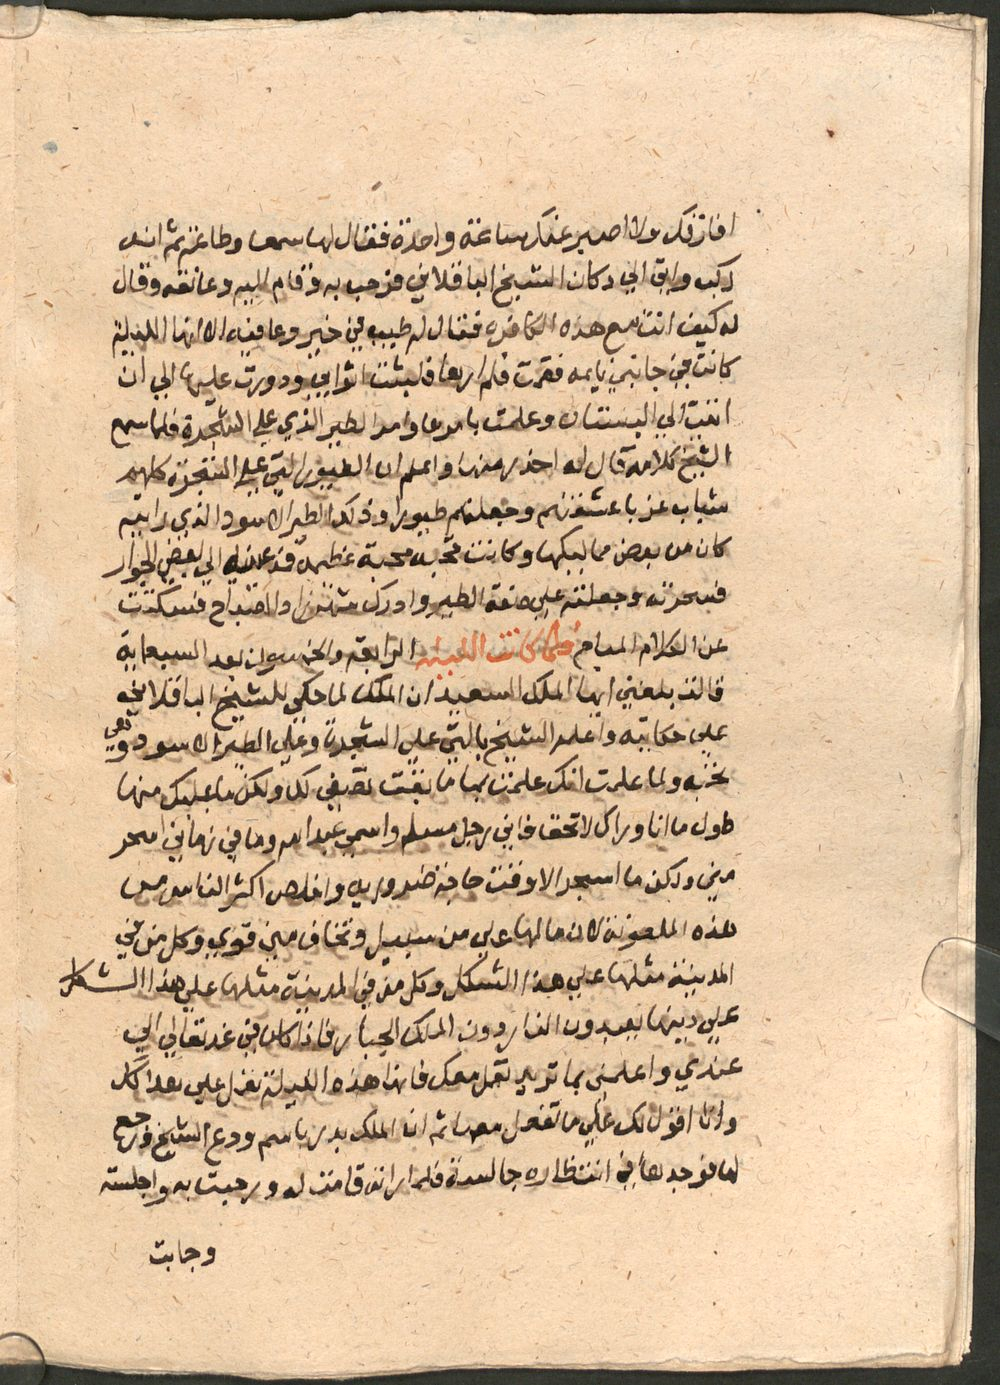 افارقك ولا اصبر عنك ساعة واحدة فقال لها سمعا وطاعة ثم انه
ركب واتى الي دكان الشيخ الباقلاني فرحب به وقام اليه وعانقه وقال
له كيف انت مع هذه الكافره فقال له طيب في خير وعافيه الا انها الليلة
كانت في جانبي نايمه فقمت فلم اراها فلبست اثوابي ودورت عليها الي ان
اتيت الي البستان وعلمت بامرها وامر الطير الذي علي الشجرة فلما سمع
الشيخ كلامه قال له احذر منها واعلم ان الطيور التي علي الشجرة كلهم
شباب غربا عشقتهم وجعلتهم طيورا وذلك الطير الاسود الذي رايته
كان من بعض مماليكها وكانت تحبه محبة عظيمة الي بعض الجوار
فسحرته وجعلته علي صفة الطير وادرك شهرزاد الصباح فسكتت
عن الكلام المباح فلما كانت الليلة الرابعة والخمسون بعد السبعماية
قالت بلغني ايها الملك السعيد ان الملك لما حكي للشيخ الباقلاني
علي حكايته واعلم الشيخ بالتي علي الشجرة وعلي الطير الاسود وهي
تحبه ولما علمت انك علمت بها ما بقت تصفي لك ولكن ما عليك منها
طول ما انا وراك لا تخف فاني رجل مسلم واسمي عبد الله وما في زماني اسحر
مني ولكن ما اسحر الا وقت حاجة ضروريه واخلص اكثر الناس من
هذه الملعونة لان ما لها علي من سبيل وتخاف مني قوي وكل من في
المدينة مثلها علي هذا الشكل وكل من في المدينة مثلها علي هذا الشكل
علي دينها يعبدون النار دون الملك الجبار فاذا كان في غد تعالي الي
عندي واعلمني بما تريد تعمل معك فانها هذه الليلة تعزل علي
وانا اقول لك علي ما تفعل معها ثم ان الملك بدر باسم ودع الشيخ ورجع
لها فوجدها في انتظاره جالسة فلما راته قامت له ورحبت به واجلسته
وجابت